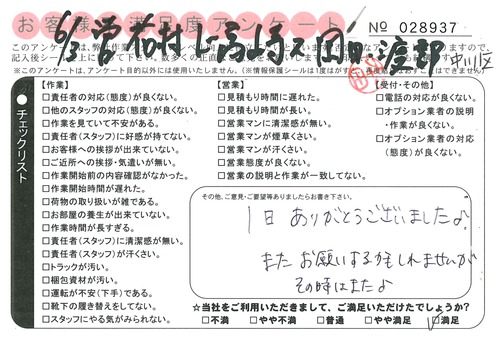 お客様満足度アンケート
No 028937
6/3 営 若村 L=高橋 2回目 渡部
中川区
※このアンケートは、アンケート目的以外には使用いたしません。
チェックリスト
【作業】
□責任者の対応(態度)が良くない。
□他のスタッフの対応(態度)が良くない。
□作業を見ていて不安がある。
□責任者(スタッフ)に好感が持てない。
□お客様への挨拶が出来ていない。
□ご近所への挨拶・気遣いが無い。
□作業開始前の内容確認がなかった。
□作業開始時間が遅れた。
□荷物の取り扱いが雑である。
□お部屋の養生が出来ていない。
□作業時間が長すぎる。
□責任者(スタッフ)に清潔感が無い。
□責任者(スタッフ)が汗くさい。
□トラックが汚い。
□梱包資材が汚い。
□運転が不安(下手)である。
□靴下の履き替えをしてない。
□スタッフにやる気がみられない。
【営業】
□見積もり時間に遅れた。
□見積もり時間が長い。
□営業マンに清潔感が無い。
□営業マンが煙草くさい。
□営業マンが汗くさい。
□営業態度が良くない。
□営業の説明と作業が一致してない。
【受付・その他】
□電話の対応が良くない。
□オプション業者の説明・作業が良くない。
□オプション業者の対応(態度)が良くない。
その他、ご意見・ご要望等ありましたらお書き下さい。
1日 ありがとうございましたよ
また お願いするかもしれませんが
その時はまたよ
☆当社をご利用いただきまして、ご満足いただけたでしょうか?
□不満 □やや不満 □普通 □やや満足 ☑満足